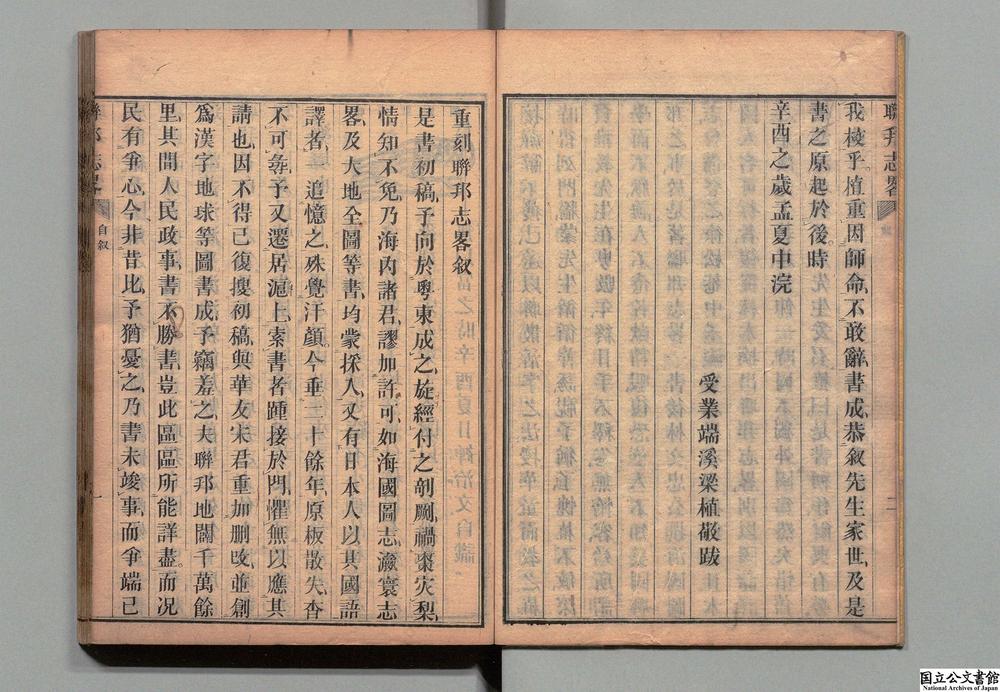 聯邦志畧
二
我梭乎植重因師命不敢辭書成恭叙先生家世及是
書之原起於後時
辛酉之歲孟夏中浣
受業端溪梁植敬跋
重刻聯邦志畧叙
是書初稿予向於粵東成之旋經付之剞劂禍棗災梨
情知不免乃海內諸君謬加許可如海國圖志瀛寰志
畧及大地全圖等書均蒙採入又有日本人以其國語
譯者追憶之殊覺汗顏今垂二十餘年原板散失杳
不可尋予又遷居滬上索書者踵接於門懼無以應其
請也因不得已復搜初稿與華友宋君重加刪改並創
爲漢字地球等圖書成予竊羞之夫聯邦地闊千萬餘
里其間人民政事書不勝書豈此區區所能詳盡而况
民有爭心今非昔比予猶憂之乃書未竣事而爭端已
聯邦志畧
自叙
一
国立公文書館
National Archives of Japan